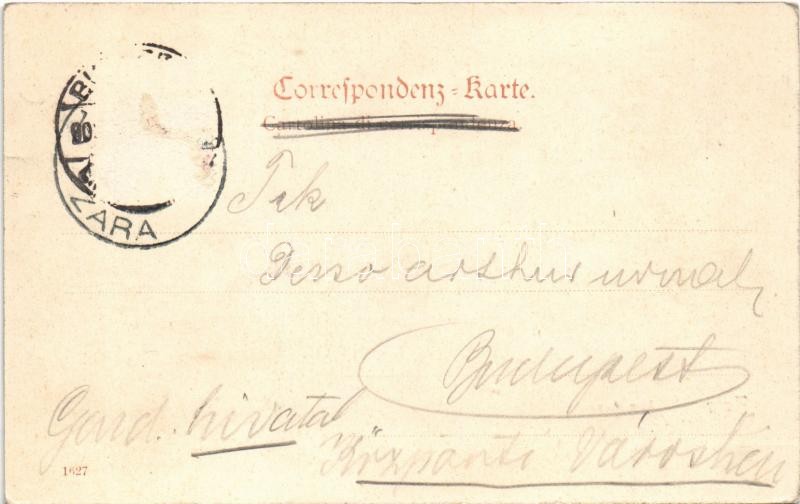 Correspondenz-Karte.
Cartolina di corrispondenza
ZARA
Tek
Dezso arthur urnak
Budapest
Gazd. hivatal
Központi Városház
1627